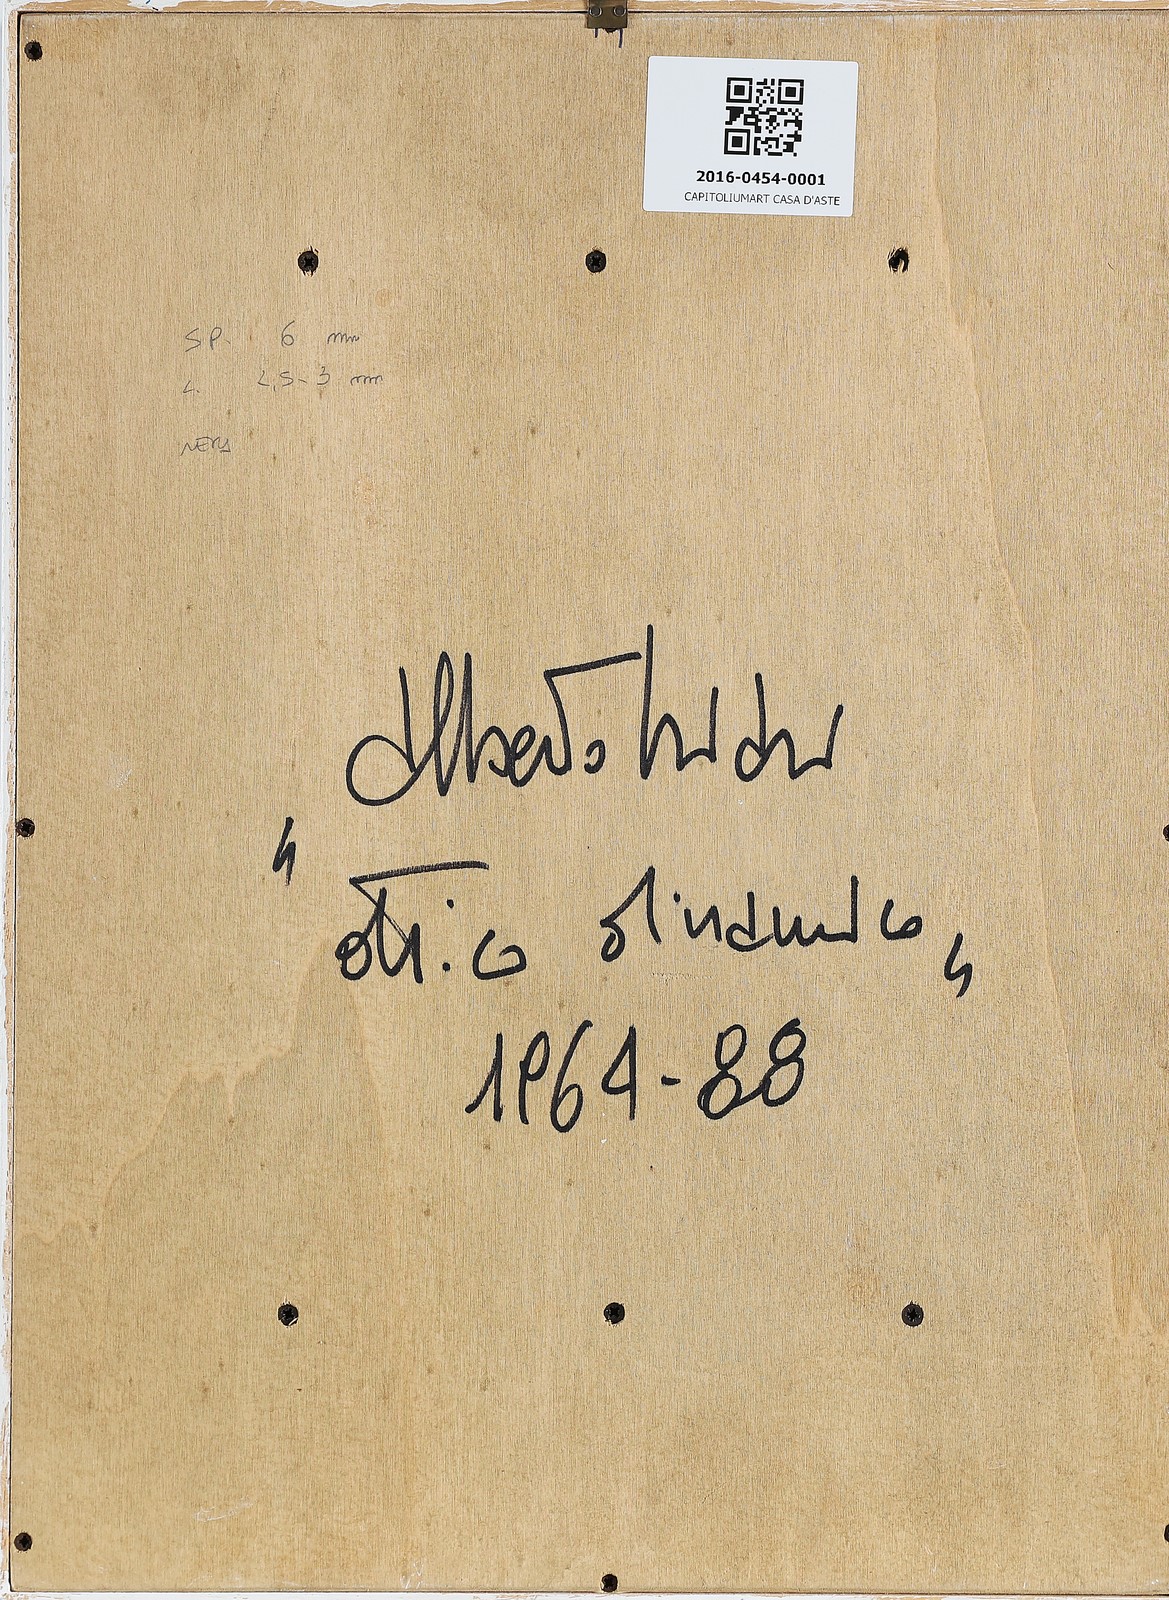 2016-0454-0001
CAPITOLIUMART CASA D'ASTE
SP. 6 mm
L. 2,5-3 mm
NERA
Alberto Biasi
"ottico dinamico"
1964-88